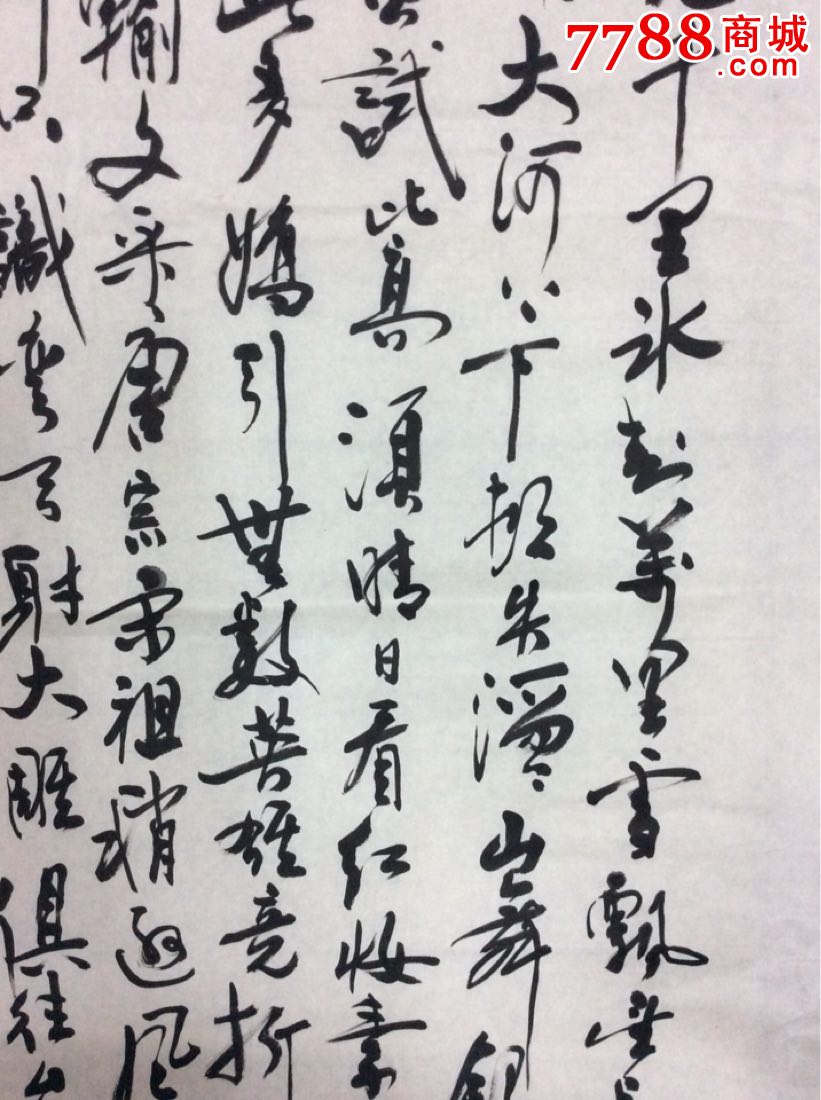 7788商城
.com
千里冰封萬里雪飄望
大河上下頓失滔滔山舞銀
試比高須晴日看紅妝素
此多嬌引無數英雄竞折
輸文采唐宗宋祖稍遜風
只識彎弓射大雕俱往矣